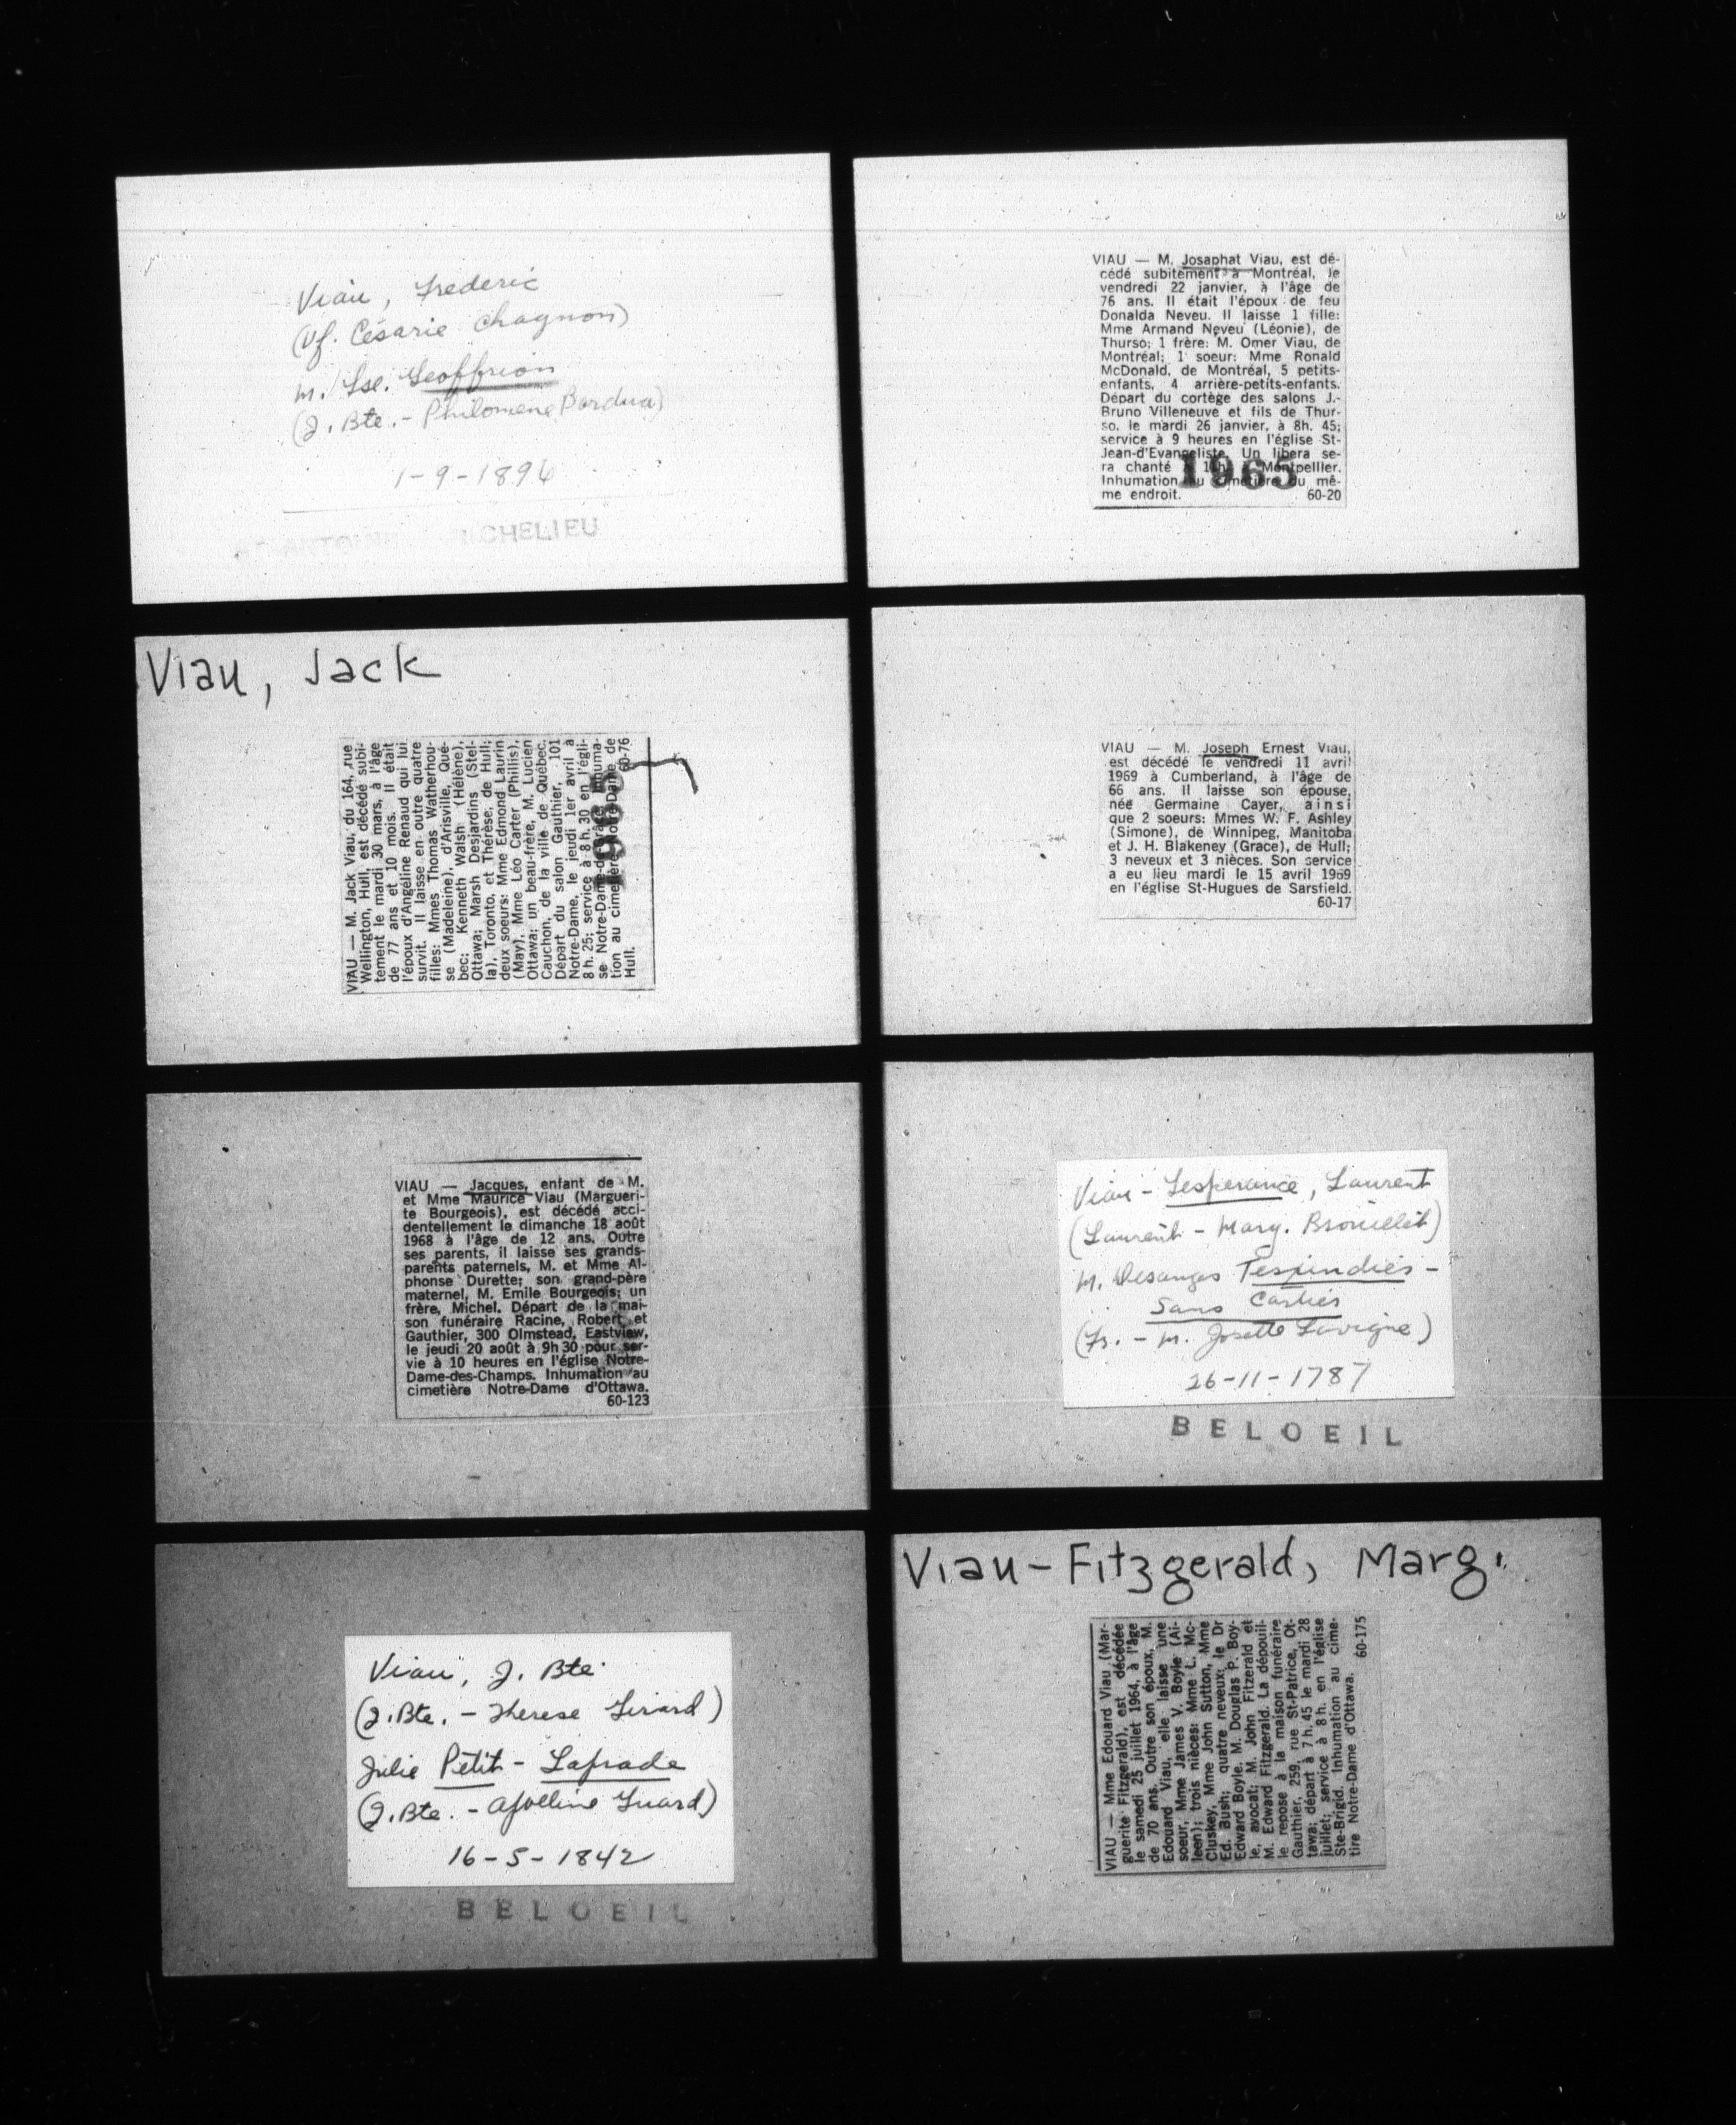 Viau, Frederic
(Vf. Césarie Chagnon)
m. Lse. Geoffrion
(J. Bte. - Philomene Bardua)
1-9-1896
RICHELIEU
Viau, Jack
VIAU — M. Jack Viau, du 164, rue
Wellington, Hull, est décédé subi-
tement le mardi 30 mars, à l'âge
de 77 ans et 10 mois. Il était
l'époux d'Angéline Renaud qui lui
survit. Il laisse en outre quatre
filles: Mmes Thomas Watherhou-
se (Madeleine), d'Arisville, Qué-
bec; Kenneth Walsh (Hélène),
Ottawa; Marsh Desjardins (Stel-
la), Toronto, et Thérèse, de Hull;
deux soeurs: Mme Edmond Laurin
(May), Mme Léo Carter (Phillis),
Ottawa; un beau-frère, M. Lucien
Cauchon, de la ville de Québec.
Départ du salon Gauthier, 101
Notre-Dame, le jeudi 1er avril à
8 h. 25; service à 8 h. 30 en l'égli-
se Notre-Dame-de-Grâce. Inhuma-
tion au cimetière Notre-Dame de
Hull. 60-76
1965
VIAU — Jacques, enfant de M.
et Mme Maurice Viau (Margueri-
te Bourgeois), est décédé acci-
dentellement le dimanche 18 août
1968 à l'âge de 12 ans. Outre
ses parents, il laisse ses grands-
parents paternels, M. et Mme Al-
phonse Durette; son grand-père
maternel, M. Emile Bourgeois; un
frère, Michel. Départ de la mai-
son funéraire Racine, Robert et
Gauthier, 300 Olmstead, Eastview,
le jeudi 20 août à 9h 30 pour ser-
vie à 10 heures en l'église Notre-
Dame-des-Champs. Inhumation au
cimetière Notre-Dame d'Ottawa.
60-123
Viau, J. Bte
(J. Bte. - Therese Girard)
Julie Petit - Laprade
(J. Bte. - Apolline Guard)
16-5-1842
BELOEIL
VIAU — M. Josaphat Viau, est dé-
cédé subitement à Montréal, le
vendredi 22 janvier, à l'âge de
76 ans. Il était l'époux de feu
Donalda Neveu. Il laisse 1 fille:
Mme Armand Neveu (Léonie), de
Thurso; 1 frère: M. Omer Viau, de
Montréal; 1 soeur: Mme Ronald
McDonald, de Montréal, 5 petits-
enfants, 4 arrière-petits-enfants.
Départ du cortège des salons J.-
Bruno Villeneuve et fils de Thur-
so, le mardi 26 janvier, à 8h. 45;
service à 9 heures en l'église St-
Jean-d'Evangeliste. Un libera se-
ra chanté à Montpellier.
Inhumation au cimetière du mê-
me endroit. 60-20
1965
VIAU — M. Joseph Ernest Viau,
est décédé le vendredi 11 avril
1969 à Cumberland, à l'âge de
66 ans. Il laisse son épouse,
née Germaine Cayer, ainsi
que 2 soeurs: Mmes W. F. Ashley
(Simone), de Winnipeg, Manitoba
et J. H. Blakeney (Grace), de Hull;
3 neveux et 3 nièces. Son service
a eu lieu mardi le 15 avril 1969
en l'église St-Hugues de Sarsfield.
60-17
Viau - Lesperance, Laurent
(Laurent - Marg. Brouillet)
M. Desanges Tespindies -
Sans Cartier
(Fs. - M. Josette Lavigne)
26-11-1787
BELOEIL
Viau-Fitzgerald, Marg.
VIAU — Mme Edouard Viau (Mar-
guerite Fitzgerald), est décédée
le samedi 25 juillet 1964, à l'âge
de 70 ans. Outre son époux, M.
Edouard Viau, elle laisse une
soeur, Mme James V. Boyle (Ai-
leen); trois nièces: Mme L. Mc-
Cluskey, Mme John Sutton, Mme
Ed. Bush; quatre neveux: le Dr
Edward Boyle, M. Douglas P. Boy-
le, avocat; M. John Fitzerald et
M. Edward Fitzgerald. La dépouil-
le repose à la maison funéraire
Gauthier, 259, rue St-Patrice, Ot-
tawa; départ à 7 h. 45 le mardi 28
juillet; service à 8 h. en l'église
Ste-Brigid. Inhumation au cime-
tire Notre-Dame d'Ottawa.
60-175